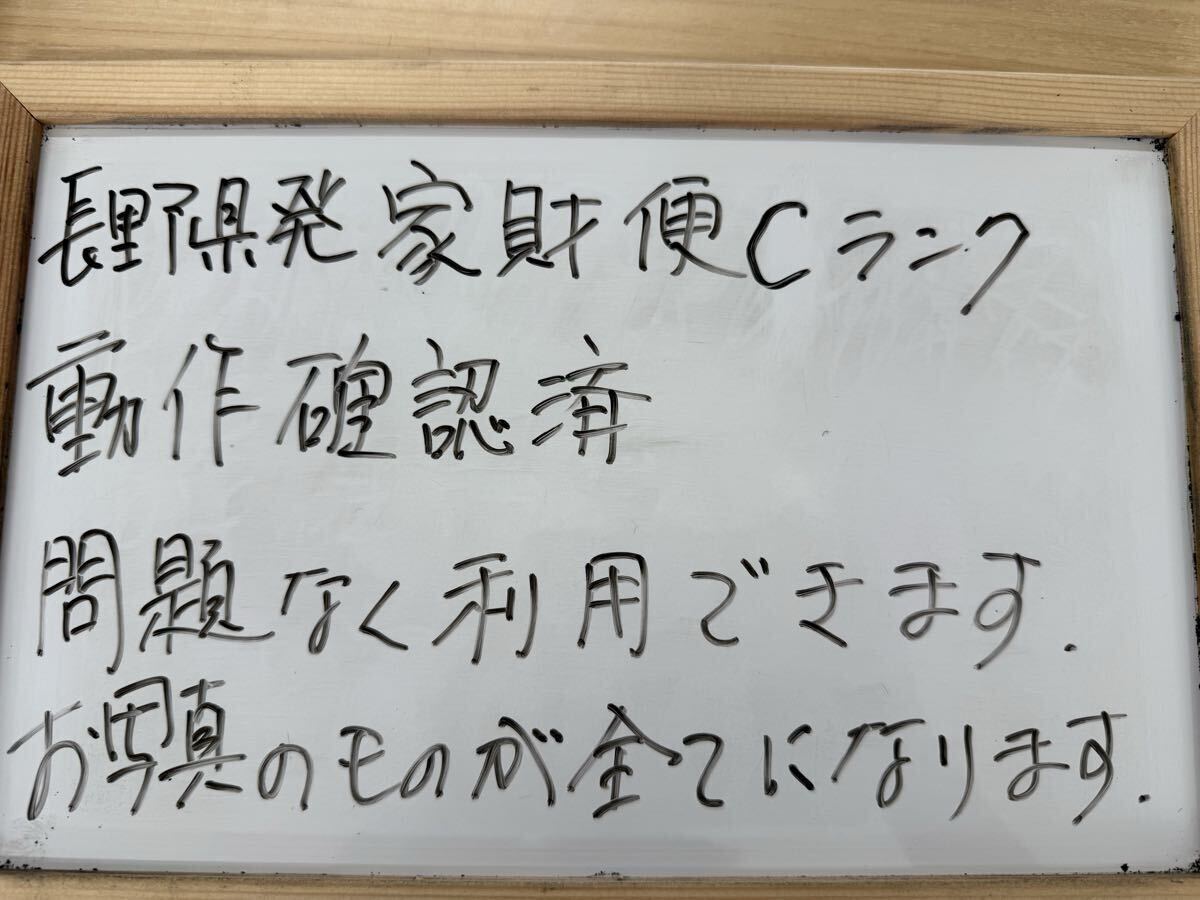 長野県発家財便Cランク
動作確認済
問題なく利用できます.
お写真のものが全てになります.